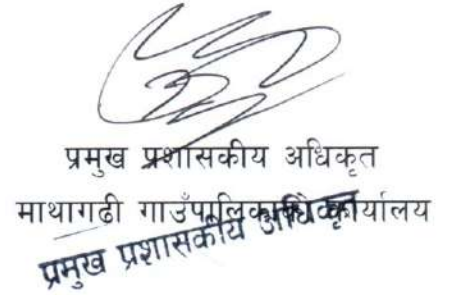 प्रमुख प्रशासकीय अधिकृत
माथागढी गाउँपालिकाको कार्यालय
प्रमुख प्रशासकीय अधिकृत